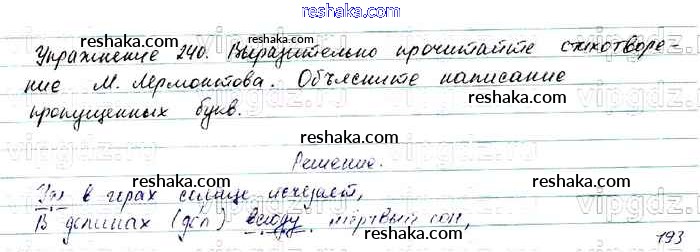 reshaka.com
Упражнение 240. Выразительно прочитайте стихотворе-
reshaka.com
ние М. Лермонтова. Объясните написание
reshaka.com
пропущенных букв.
reshaka.com
vipgdz.ru
Решение.
reshaka.com
Уж в горах солнце исчезает,
В долинах (дол) всюду мёртвый сон,
reshaka.com
193